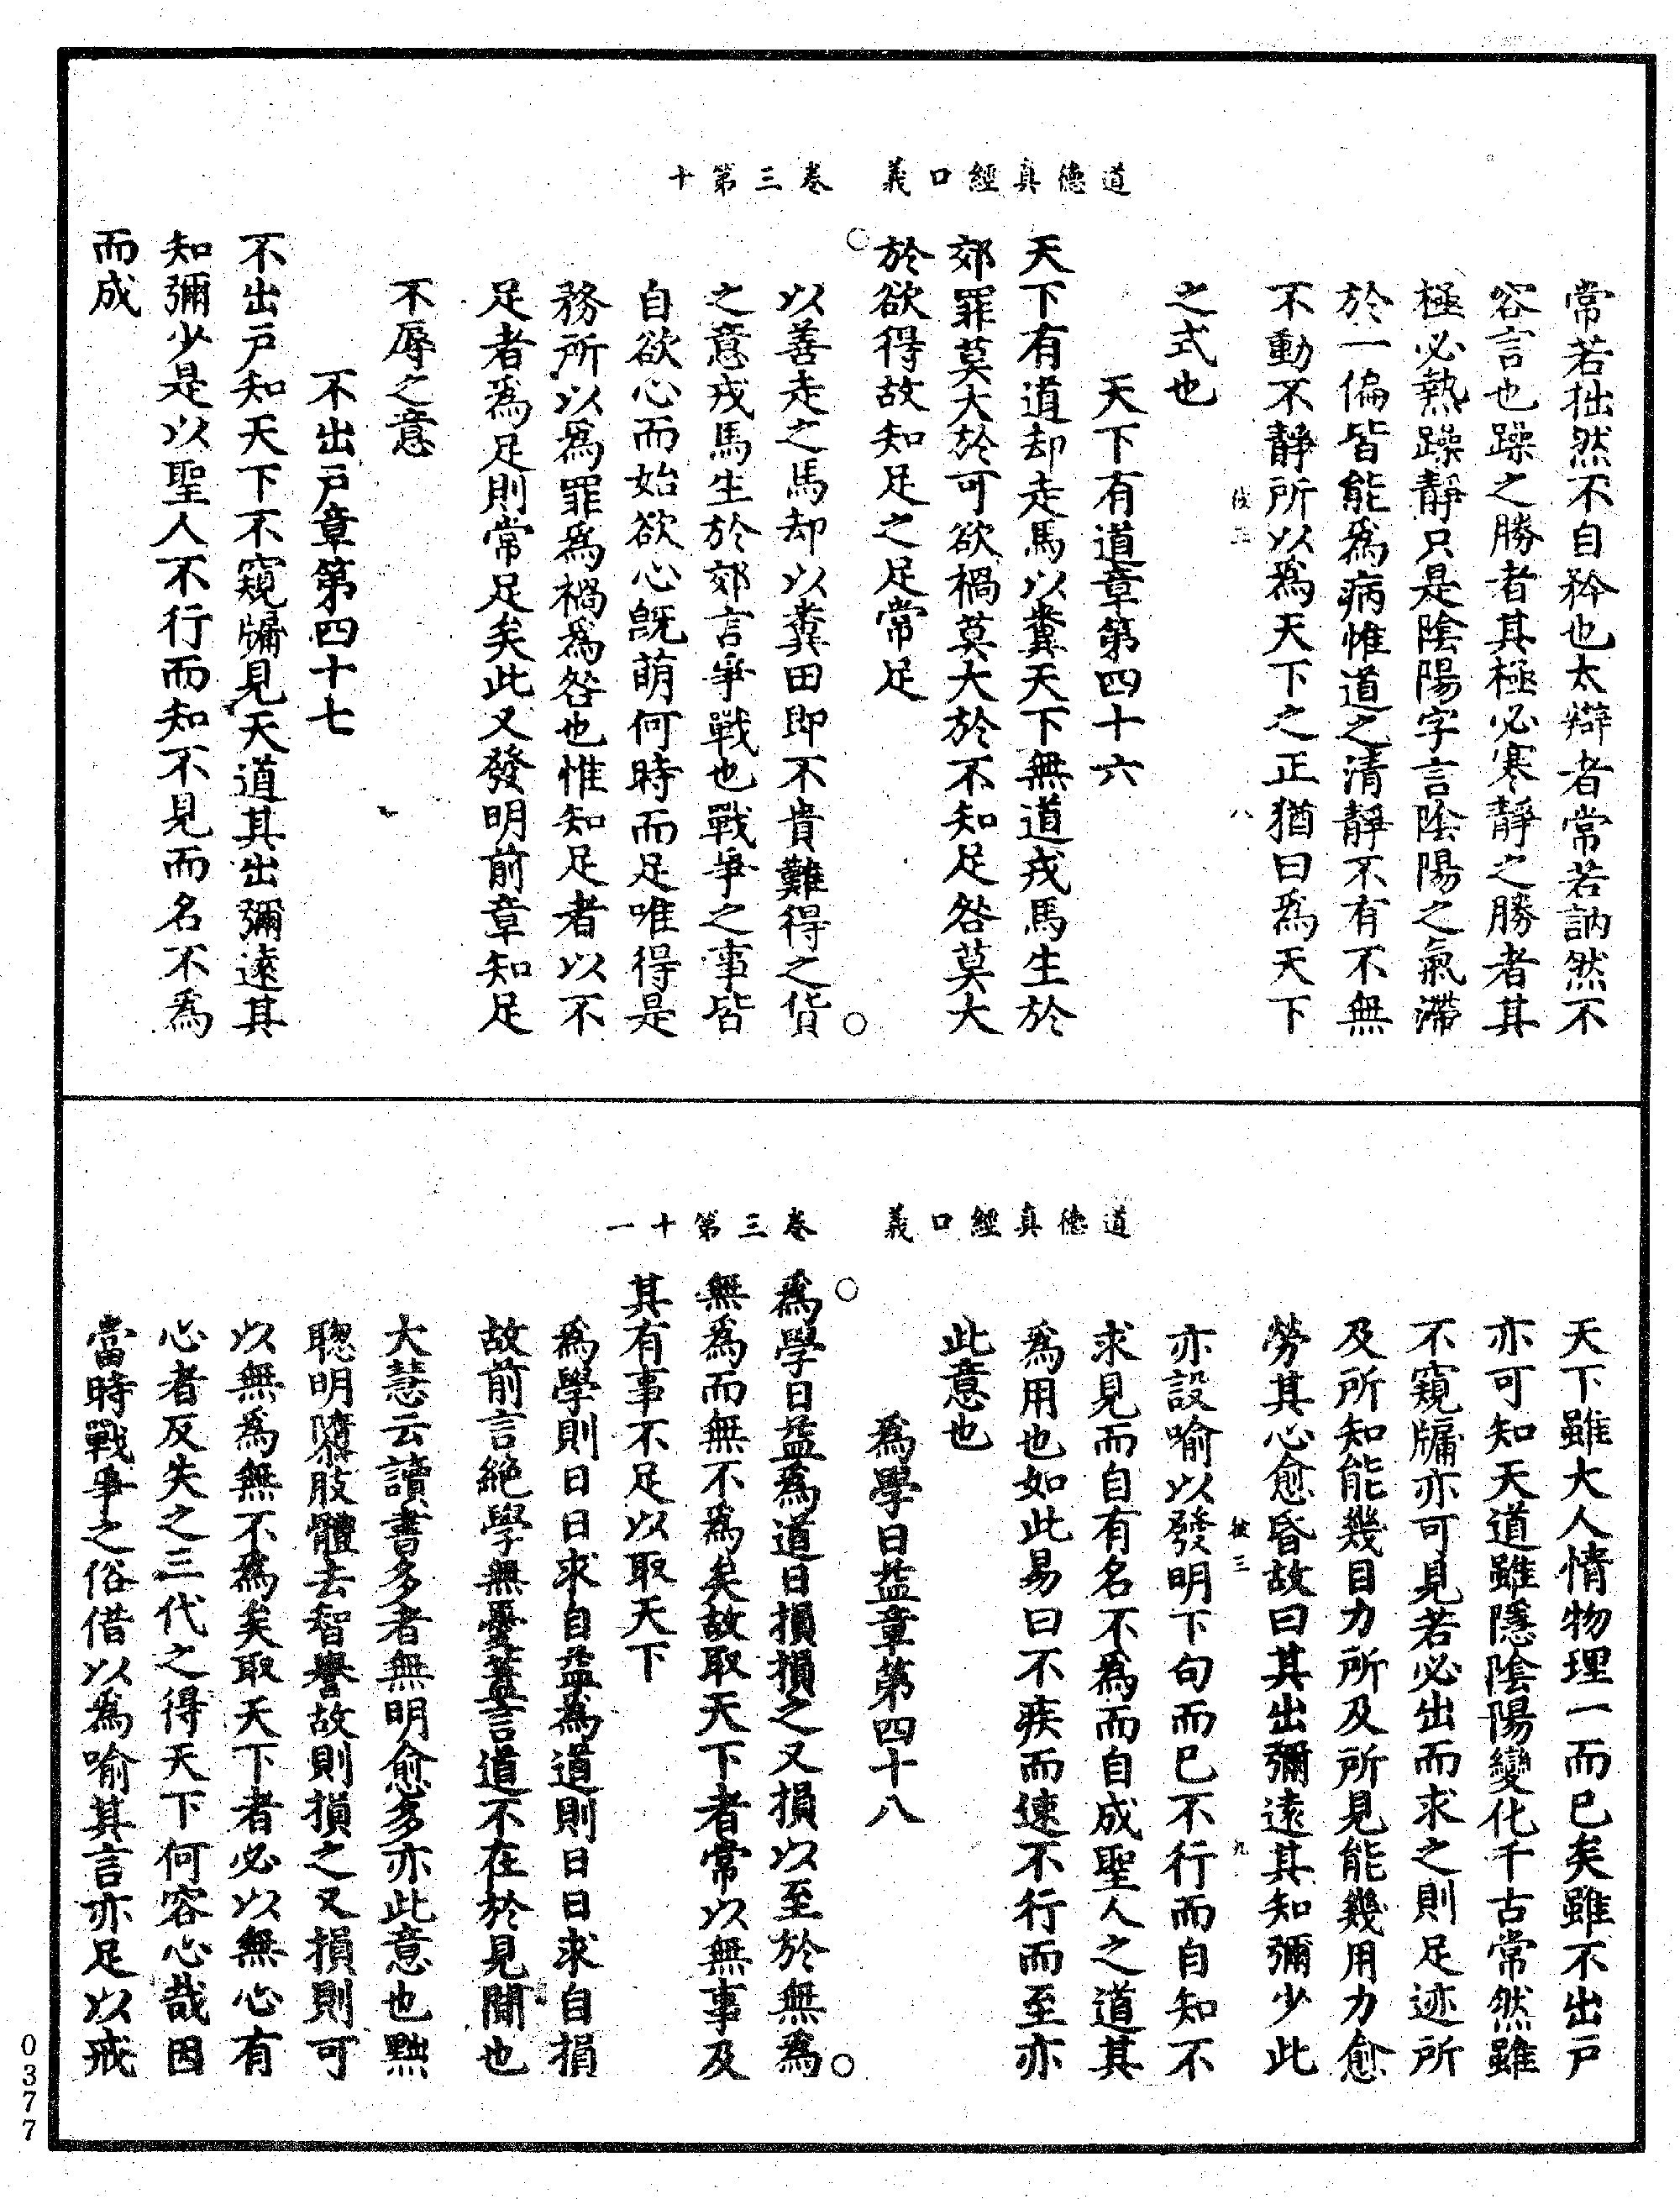 道德真經口義　卷三第十
常若拙然不自矜也太辯者常若訥然不
容言也躁之勝者其極必寒靜之勝者其
極必熱躁靜只是陰陽字言陰陽之氣滯
於一偏皆能爲病惟道之清靜不有不無
不動不靜所以爲天下之正猶曰爲天下
八
之式也
天下有道章第四十六
天下有道却走馬以糞天下無道戎馬生於
郊罪莫大於可欲禍莫大於不知足咎莫大
於欲得故知足之足常足
以善走之馬却以糞田即不貴難得之貨
之意戎馬生於郊言爭戰也戰爭之事皆
自欲心而始欲心既萌何時而足唯得是
務所以爲罪爲禍爲咎也惟知足者以不
足者爲足則常足矣此又發明前章知足
不辱之意
不出戶章第四十七
不出戶知天下不窺牖見天道其出彌遠其
知彌少是以聖人不行而知不見而名不爲
而成
道德真經口義　卷三第十一
天下雖大人情物理一而已矣雖不出戶
亦可知天道雖隱陰陽變化千古常然雖
不窺牖亦可見若必出而求之則足迹所
及所知能幾目力所及所見能幾用力愈
勞其心愈昏故曰其出彌遠其知彌少此
三　九
亦設喻以發明下句而已不行而自知不
求見而自有名不爲而自成聖人之道其
爲用也如此易曰不疾而速不行而至亦
此意也
爲學日益章第四十八
爲學日益爲道日損損之又損以至於無爲
無爲而無不爲矣故取天下者常以無事及
其有事不足以取天下
爲學則日日求自益爲道則日日求自損
故前言絕學無憂蓋言道不在於見聞也
大慧云讀書多者無明愈多亦此意也黜
聰明隳肢體去智譽故則損之又損則可
以無爲無不爲矣取天下者必以無心有
心者反失之三代之得天下何容心哉因
當時戰爭之俗借以爲喻其言亦足以戒
0377